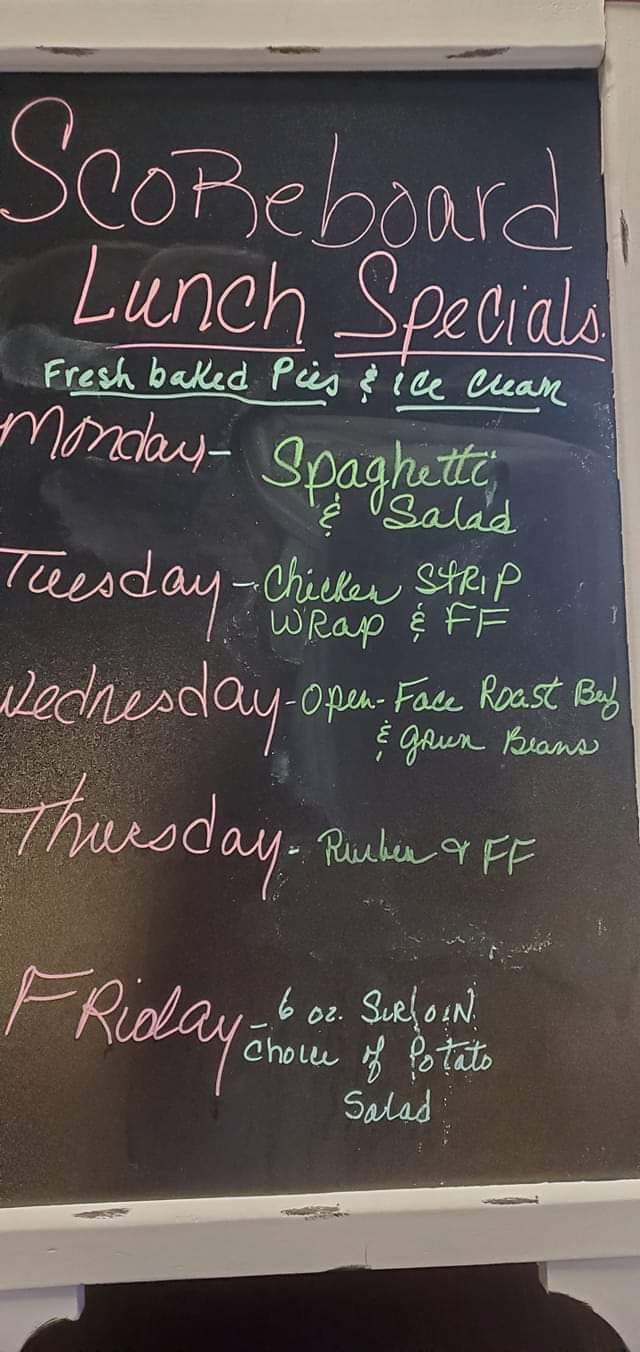 ScoReboard
Lunch Specials.
Fresh baked Pies & ice cream
Monday- Spaghetti
& Salad
Tuesday- Chicken STRIP
WRap & FF
Wednesday- Open-Face Roast Beef
& green Beans
Thursday- Reuben & FF
FRiday- 6 oz. SiRloiN
Choice of Potato
Salad